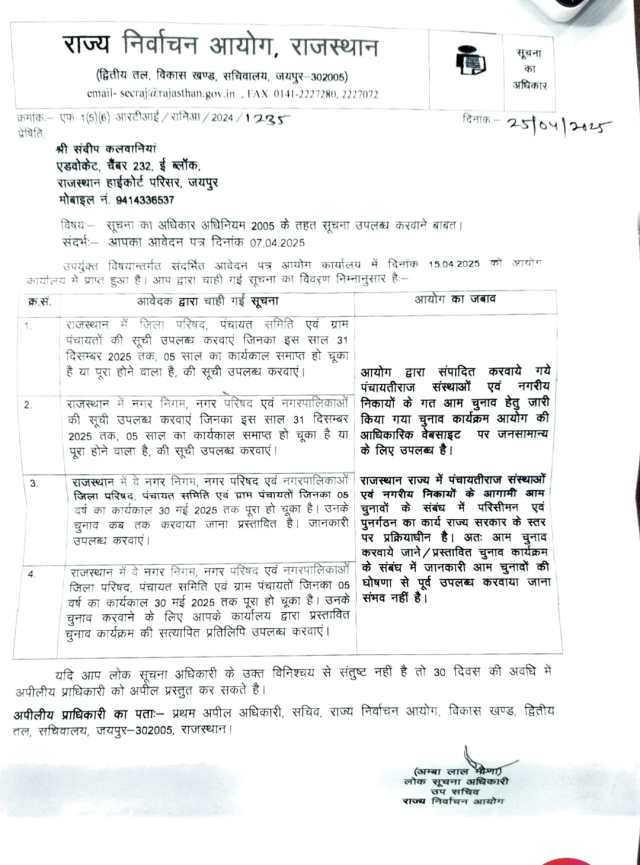 राज्य निर्वाचन आयोग, राजस्थान
(द्वितीय तल, विकास खण्ड, सचिवालय, जयपुर–302005)
email- secraj@rajasthan.gov.in , FAX 0141-2227280, 2227072
सूचना
का
अधिकार
क्रमांकः– एफ 1(5)(6) आरटीआई/रानिआ/2024/1235
दिनांकः– 25/04/2025
प्रेषिति
श्री संदीप कलवानियां
एडवोकेट, चैंबर 232, ई ब्लॉक,
राजस्थान हाईकोर्ट परिसर, जयपुर
मोबाइल नं. 9414336537
विषयः– सूचना का अधिकार अधिनियम 2005 के तहत सूचना उपलब्ध करवाने बाबत।
संदर्भः– आपका आवेदन पत्र दिनांक 07.04.2025
उपर्युक्त विषयान्तर्गत संदर्भित आवेदन पत्र आयोग कार्यालय में दिनांक 15.04.2025 को आयोग
कार्यालय मे प्राप्त हुआ है। आप द्वारा चाही गई सूचना का विवरण निम्नानुसार है:–
क्र.सं. आवेदक द्वारा चाही गई सूचना आयोग का जबाव
1. राजस्थान में जिला परिषद, पंचायत समिति एवं ग्राम
पंचायतों की सूची उपलब्ध करवाएं जिनका इस साल 31
दिसम्बर 2025 तक, 05 साल का कार्यकाल समाप्त हो चूका
है या पूरा होने वाला है, की सूची उपलब्ध करवाएं।
2. राजस्थान में नगर निगम, नगर परिषद एवं नगरपालिकाओं
की सूची उपलब्ध करवाएं जिनका इस साल 31 दिसम्बर
2025 तक, 05 साल का कार्यकाल समाप्त हो चूका है या
पूरा होने वाला है, की सूची उपलब्ध करवाएं।
आयोग द्वारा संपादित करवाये गये
पंचायतीराज संस्थाओं एवं नगरीय
निकायों के गत आम चुनाव हेतु जारी
किया गया चुनाव कार्यक्रम आयोग की
आधिकारिक वेबसाइट पर जनसामान्य
के लिए उपलब्ध है।
3. राजस्थान में वे नगर निगम, नगर परिषद एवं नगरपालिकाओं
जिला परिषद, पंचायत समिति एवं ग्राम पंचायतों जिनका 05
वर्ष का कार्यकाल 30 मई 2025 तक पूरा हो चूका है। उनके
चुनाव कब तक करवाया जाना प्रस्तावित है। जानकारी
उपलब्ध करवाएं।
4. राजस्थान में वे नगर निगम, नगर परिषद एवं नगरपालिकाओं
जिला परिषद, पंचायत समिति एवं ग्राम पंचायतों जिनका 05
वर्ष का कार्यकाल 30 मई 2025 तक पूरा हो चूका है। उनके
चुनाव करवाने के लिए आपके कार्यालय द्वारा प्रस्तावित
चुनाव कार्यक्रम की सत्यापित प्रतिलिपि उपलब्ध करवाएं।
राजस्थान राज्य में पंचायतीराज संस्थाओं
एवं नगरीय निकायों के आगामी आम
चुनावों के संबंध में परिसीमन एवं
पुनर्गठन का कार्य राज्य सरकार के स्तर
पर प्रक्रियाधीन है। अतः आम चुनाव
करवाये जाने/प्रस्तावित चुनाव कार्यक्रम
के संबंध में जानकारी आम चुनावों की
घोषणा से पूर्व उपलब्ध करवाया जाना
संभव नहीं है।
यदि आप लोक सूचना अधिकारी के उक्त विनिश्चय से संतुष्ट नहीं है तो 30 दिवस की अवधि में
अपीलीय प्राधिकारी को अपील प्रस्तुत कर सकते है।
अपीलीय प्राधिकारी का पताः– प्रथम अपील अधिकारी, सचिव, राज्य निर्वाचन आयोग, विकास खण्ड, द्वितीय
तल, सचिवालय, जयपुर–302005, राजस्थान।
(अम्बा लाल मीणा)
लोक सूचना अधिकारी
उप सचिव
राज्य निर्वाचन आयोग